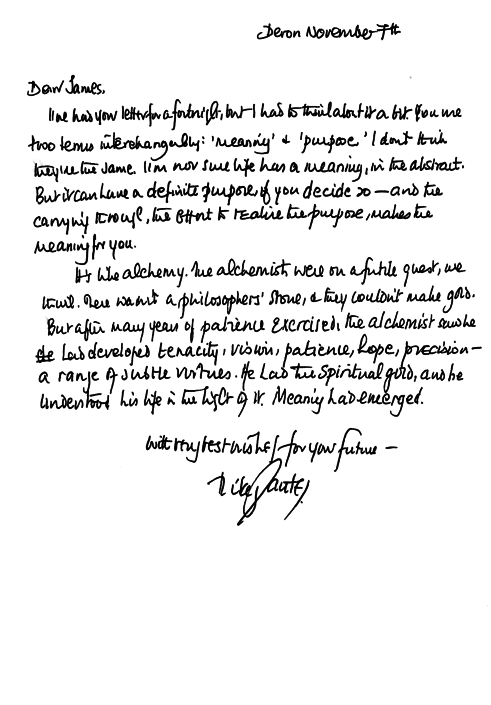 Devon November 7th
Dear James,
I've had your letter for a fortnight, but I had to think about it a bit. You use
two terms interchangeably: 'meaning' & 'purpose.' I don't think
they're the same. I'm not sure life has a meaning, in the abstract.
But it can have a definite purpose if you decide so — and the
carrying through, the effort to realize the purpose, makes the
meaning for you.
It's like alchemy. The alchemists were on a futile quest, we
think. There wasn't a philosophers' stone, & they couldn't make gold.
But after many years of patience exercised, the alchemist saw he
had developed tenacity, vision, patience, hope, precision —
a range of subtle virtues. He had the spiritual gold, and he
understood his life in the light of it. Meaning had emerged.
With very best wishes for your future —